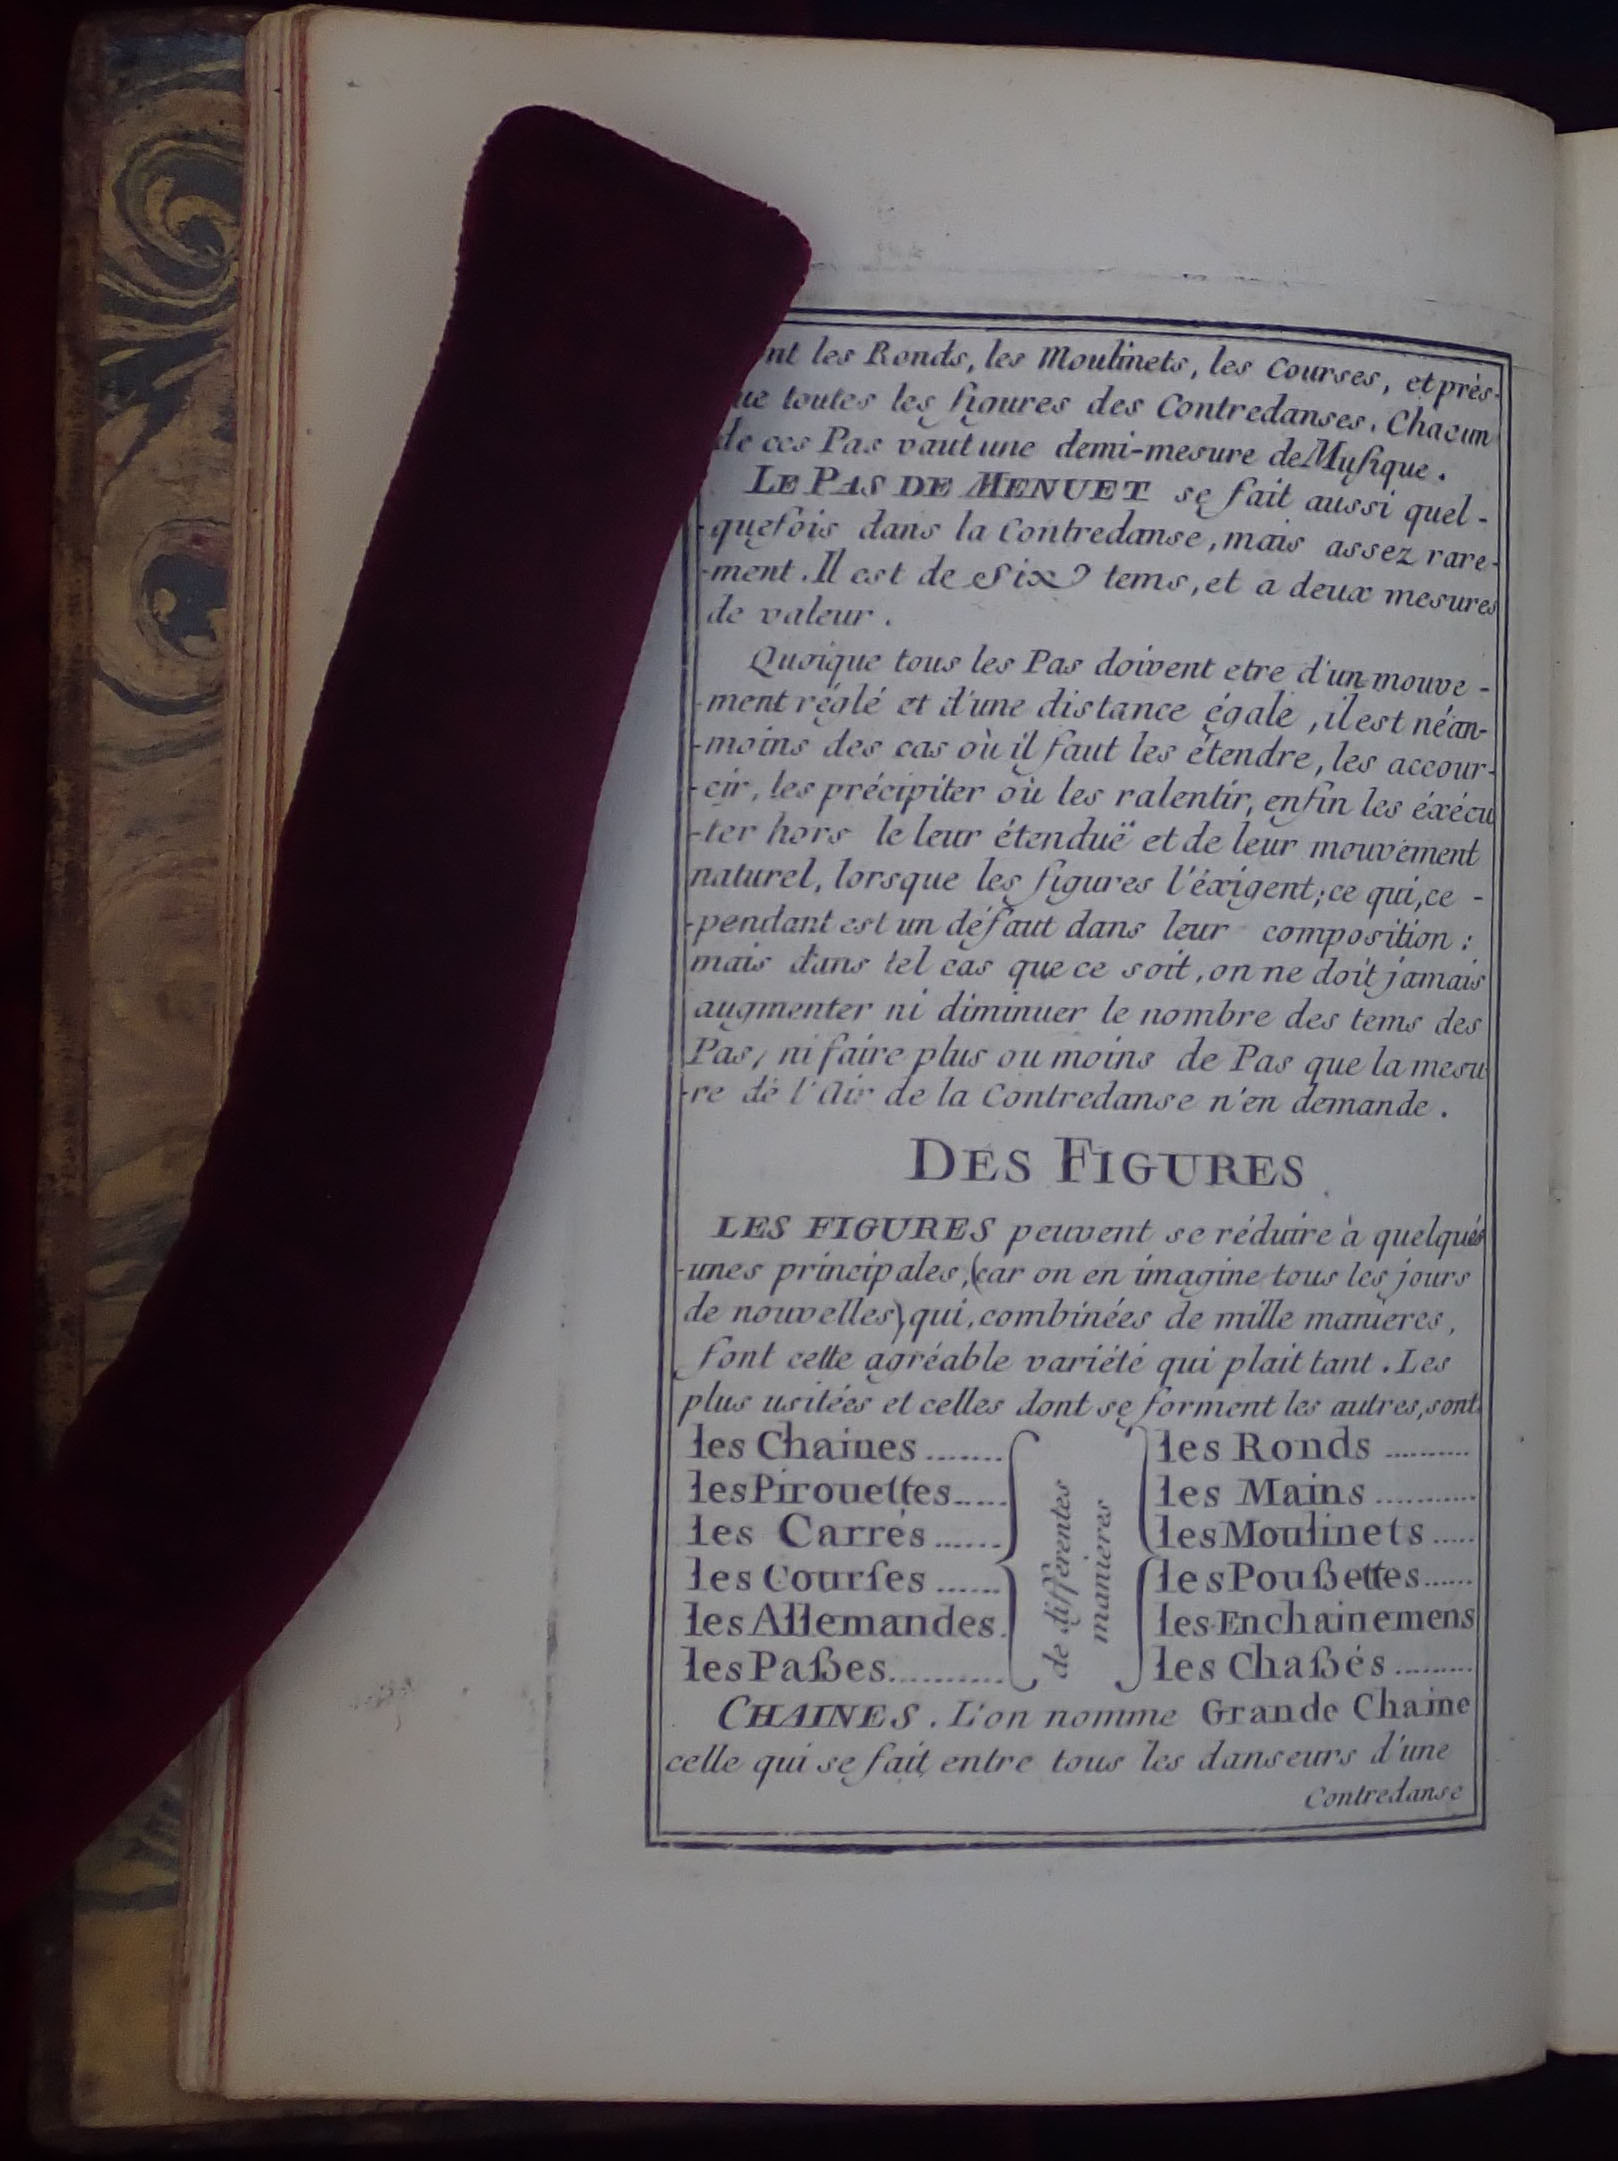 nt les Ronds, les Moulinets, les Courses, et près-
ue toutes les figures des Contredanses. Chacun
de ces Pas vaut une demi-mesure de Musique.
LE PAS DE MENUET se fait aussi quel-
-quefois dans la Contredanse, mais assez rare-
-ment. Il est de Six tems, et a deux mesures
de valeur.
Quoique tous les Pas doivent etre d'un mouve-
-ment réglé et d'une distance égale, il est néan-
-moins des cas où il faut les étendre, les accour-
-cir, les précipiter où les ralentir, enfin les éxécu
-ter hors le leur étenduë et de leur mouvement
naturel, lorsque les figures l'éxigent; ce qui, ce-
-pendant est un défaut dans leur composition:
mais dans tel cas que ce soit, on ne doit jamais
augmenter ni diminuer le nombre des tems des
Pas, ni faire plus ou moins de Pas que la mesu
-re dé l'Air de la Contredanse n'en demande.
DES FIGURES
LES FIGURES peuvent se réduire à quelqués
-unes principales, (car on en imagine tous les jours
de nouvelles) qui, combinées de mille manieres,
font cette agréable variété qui plait tant. Les
plus usitées et celles dont se forment les autres, sont
les Chaines ........
les Pirouettes ......
les Carrés ......
les Courſes .......
les Allemandes.
les Paßes...........
de differentes
manieres
les Ronds ..........
les Mains ...........
les Moulinets .....
les Poußettes......
les Enchainemens
les Chaßés .........
CHAINES. L'on nomme Grande Chaine
celle qui se fait entre tous les danseurs d'une
Contredanse